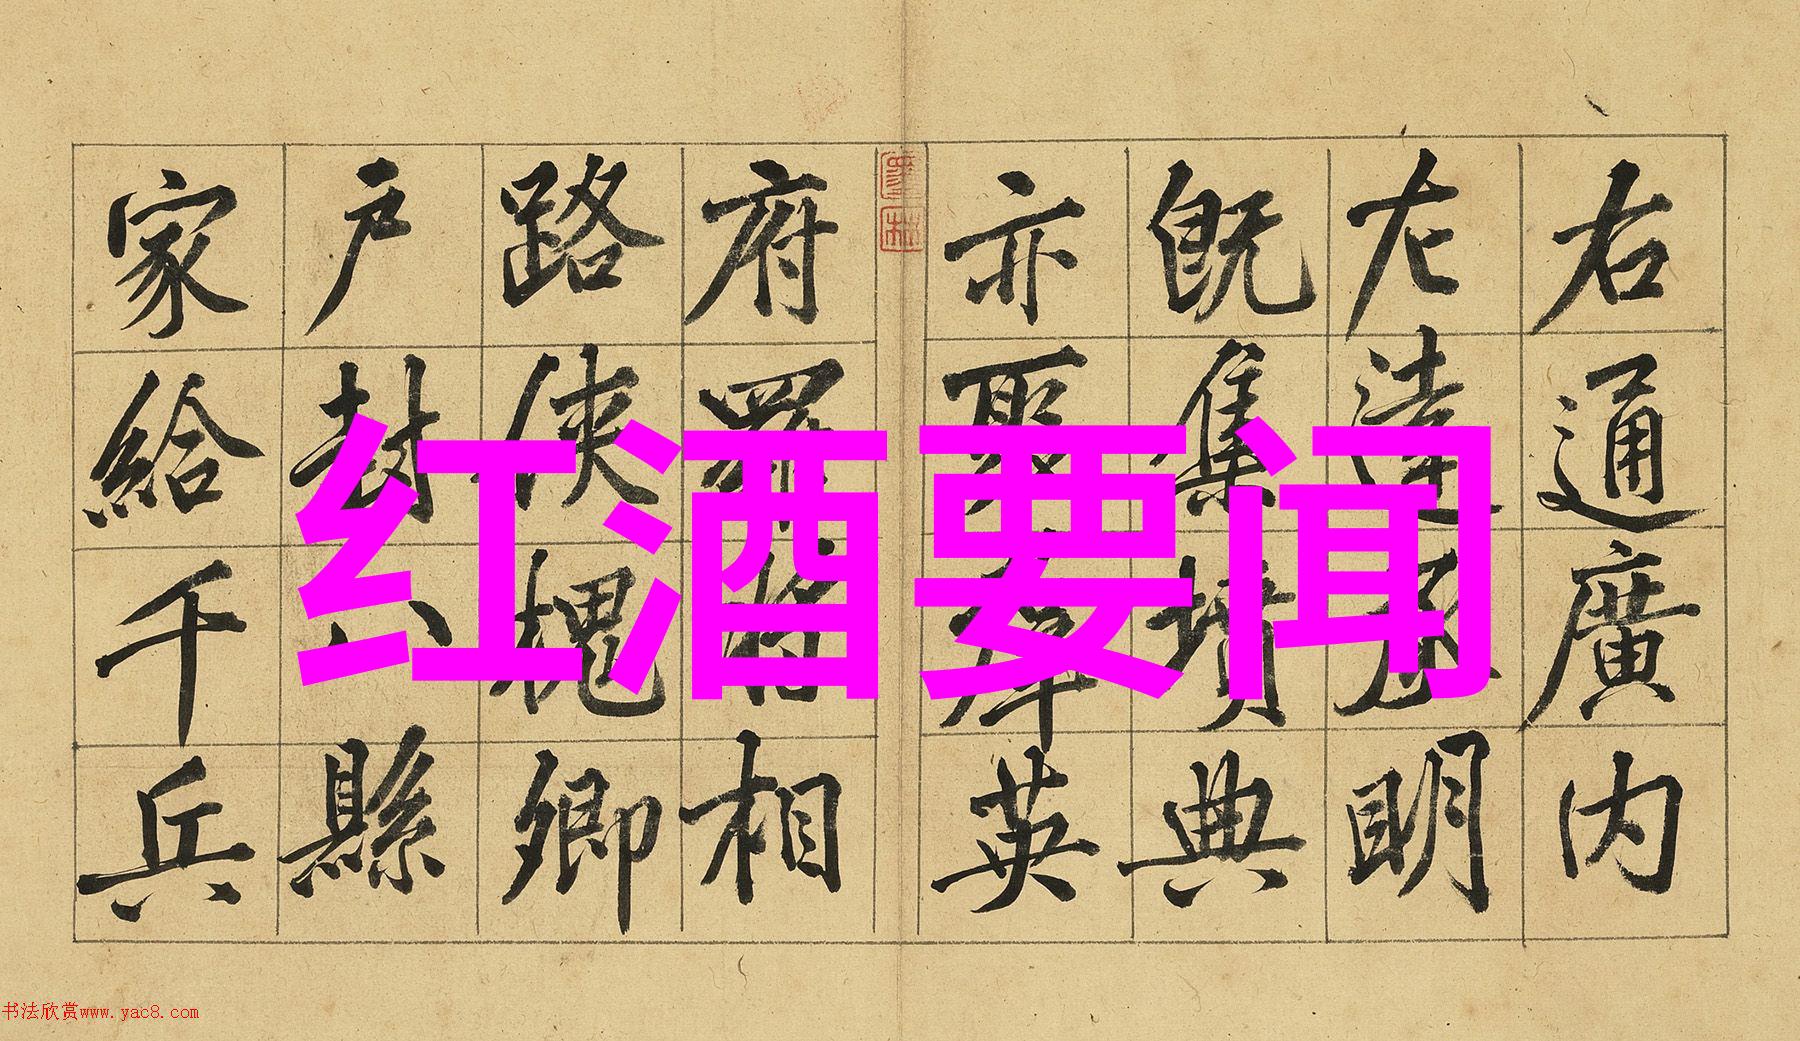 右通廣内
左達承明
既集墳典
亦聚群英
府羅將相
路俠槐卿
户封八縣
家給千兵
红酒要闻
书法欣赏www.yac8.com